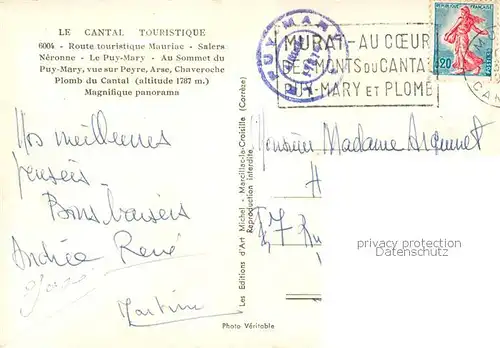 LE CANTAL TOURISTIQUE
6004 - Route touristique Mauriac - Salers
Néronne - Le Puy-Mary - Au Sommet du
Puy-Mary, vue sur Peyre, Arse, Chaveroche
Plomb du Cantal (altitude 1787 m.)
Magnifique panorama
PUY-MARY
MURAT-AU CŒUR
DES MONTS DU CANTAL
PUY-MARY ET PLOMB
REPUBLIQUE FRANÇAISE
0,20
Nos meilleures
pensées
Bons baisers
Andrée René
Martine
Monsieur Madame
H
7 Ru
Les Editions d'Art Michel - Marcillac-la-Croisille (Corrèze)
Reproduction Interdite
Photo Véritable
privacy protection
Datenschutz